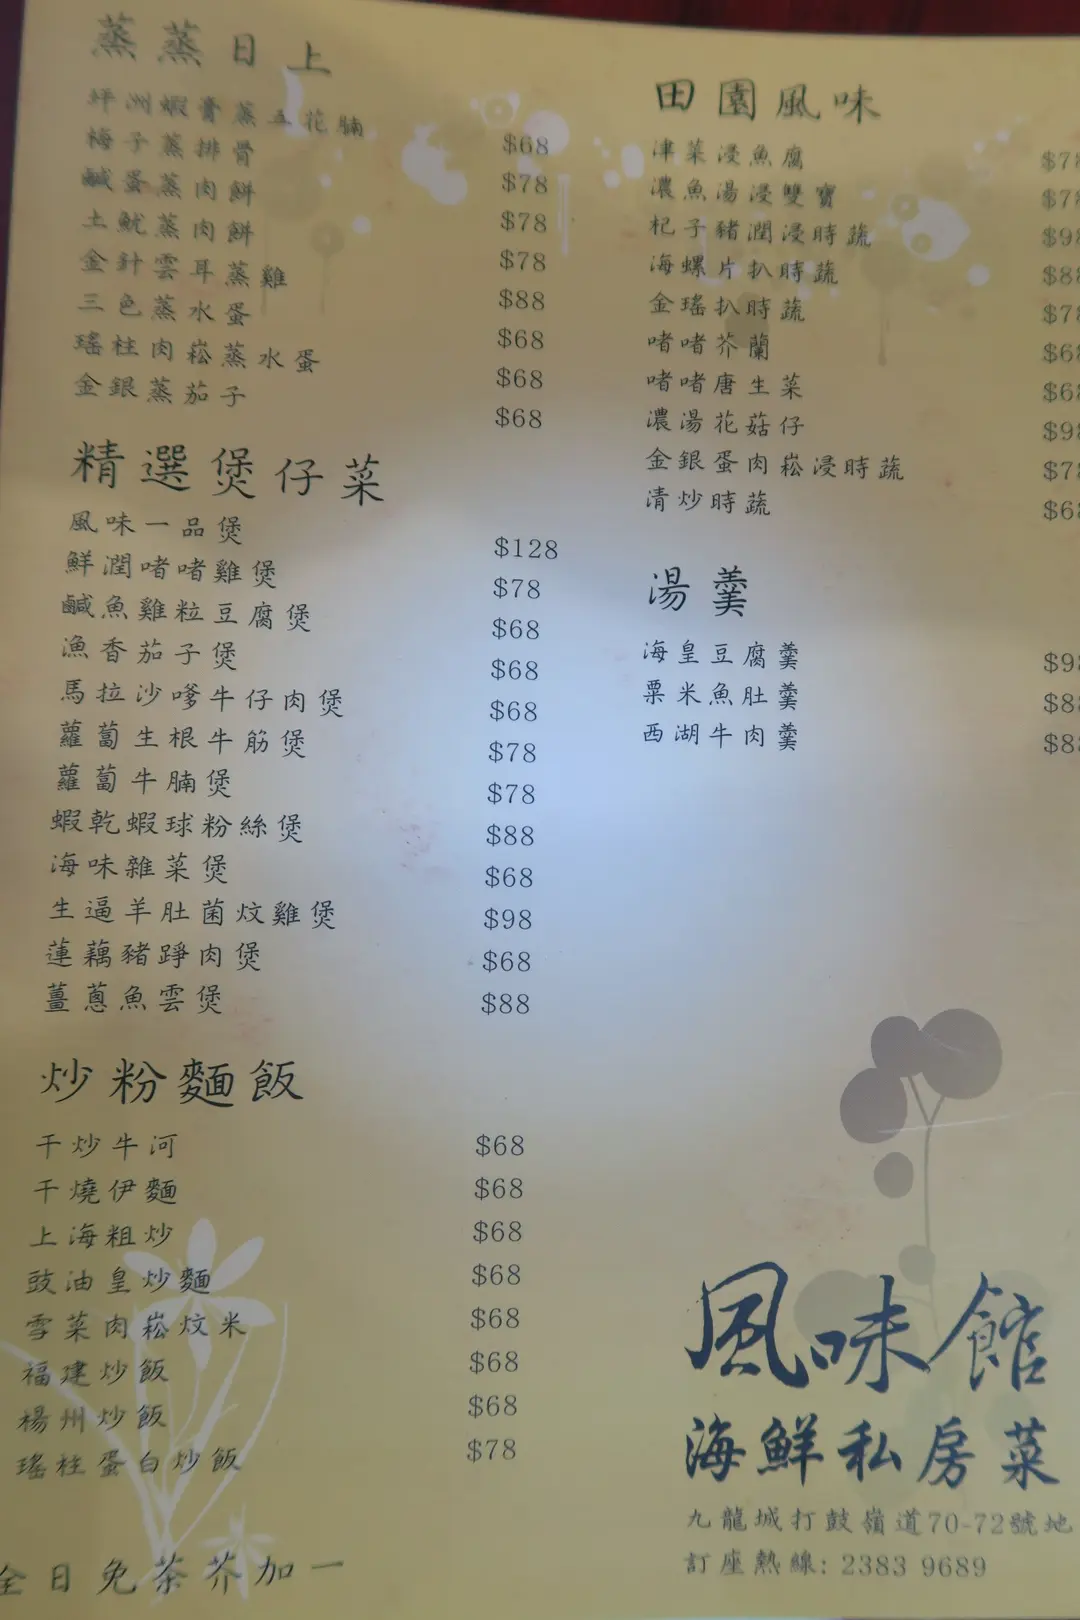 蒸蒸日上
坪洲蝦膏蒸五花腩 $68
梅子蒸排骨 $78
鹹蛋蒸肉餅 $78
土魷蒸肉餅 $78
金針雲耳蒸雞 $88
三色蒸水蛋 $68
瑤柱肉崧蒸水蛋 $68
金銀蒸茄子 $68
精選煲仔菜
風味一品煲 $128
鮮潤啫啫雞煲 $78
鹹魚雞粒豆腐煲 $68
漁香茄子煲 $68
馬拉沙嗲牛仔肉煲 $68
蘿蔔生根牛筋煲 $78
蘿蔔牛腩煲 $78
蝦乾蝦球粉絲煲 $88
海味雜菜煲 $68
生逼羊肚菌炆雞煲 $98
蓮藕豬踭肉煲 $68
薑蔥魚雲煲 $88
炒粉麵飯
干炒牛河 $68
干燒伊麵 $68
上海粗炒 $68
豉油皇炒麵 $68
雪菜肉崧炆米 $68
福建炒飯 $68
楊州炒飯 $68
瑤柱蛋白炒飯 $78
全日免茶芥加一
田園風味
津菜浸魚腐
濃魚湯浸雙寶
杞子豬潤浸時蔬
海螺片扒時蔬
金瑤扒時蔬
啫啫芥蘭
啫啫唐生菜
濃湯花菇仔
金銀蛋肉崧浸時蔬
清炒時蔬
湯羹
海皇豆腐羹
粟米魚肚羹
西湖牛肉羹
風味館
海鮮私房菜
九龍城打鼓嶺道70-72號地
訂座熱線: 2383 9689